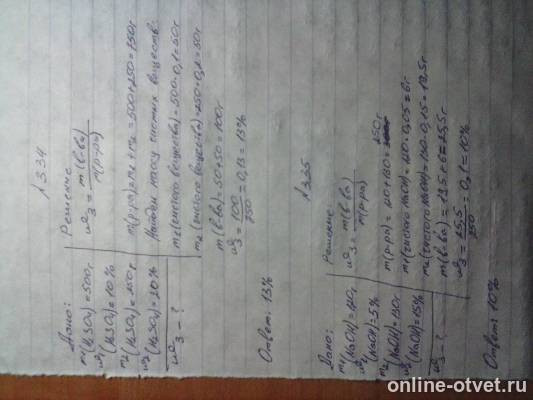 №334
Дано:
m₁(H₂SO₄)=500г
ω₁(H₂SO₄)=10%
m₂(H₂SO₄)=250г
ω₂(H₂SO₄)=20%
ω₃-?
Решение
ω₃ = m(в-ва)/m(р-ра)
m(р-ра)=m₁+m₂=500+250=750г
Найдём массу чистых веществ:
m₁(чистого вещества)=500·0,1=50г
m₂(чистого вещества)=250·0,2=50г
m(в-ва)=50+50=100г
ω₃=100/750=0,13=13%
Ответ: 13%
№335
Дано:
m₁(NaOH)=120г
ω₁(NaOH)=5%
m₂(NaOH)=130г
ω₂(NaOH)=15%
ω₃-?
Решение
ω₃ = m(в-ва)/m(р-ра)
m(р-ра)=120+130=250г
m₁(чистого NaOH)=120·0,05=6г
m₂(чистого NaOH)=130·0,15=19,5г
m(в-ва)=19,5+6=25,5г
ω₃=25,5/250=0,1=10%
Ответ: 10%
online-otvet.ru